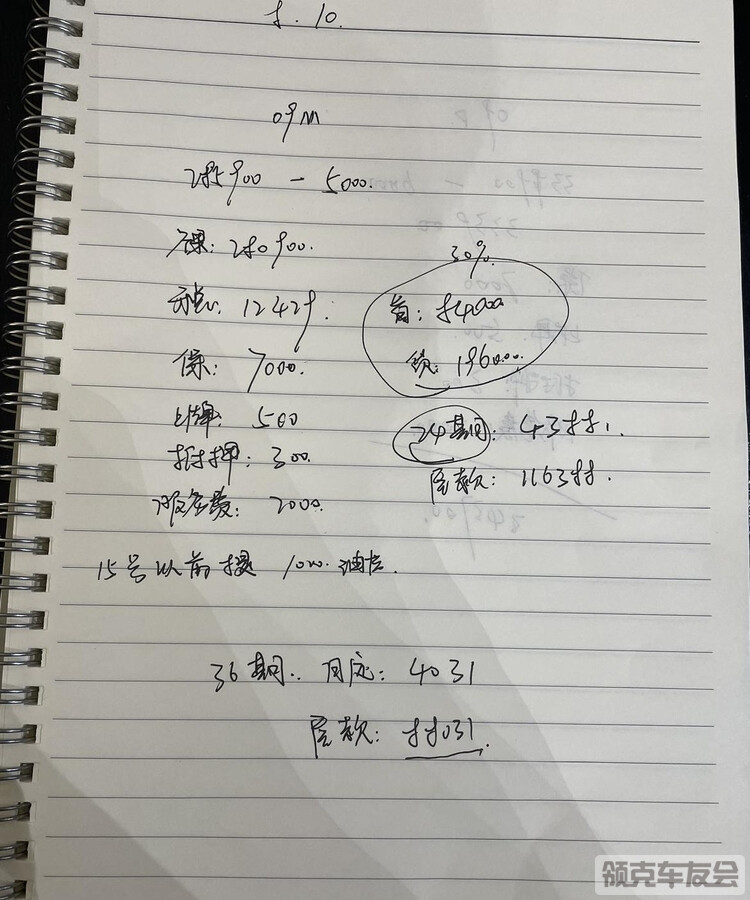 8.10.
09M
285900 - 5000.
裸: 280900.
30%
12429.
首: 84000
保: 7000.
贷: 196000.
上牌: 500
24期: 4388.
抵押: 300.
尾款: 116388.
服务费: 2000.
15号以前提 1000.油卡.
36期.. 月: 4031
尾款: 88031.
领克车友会